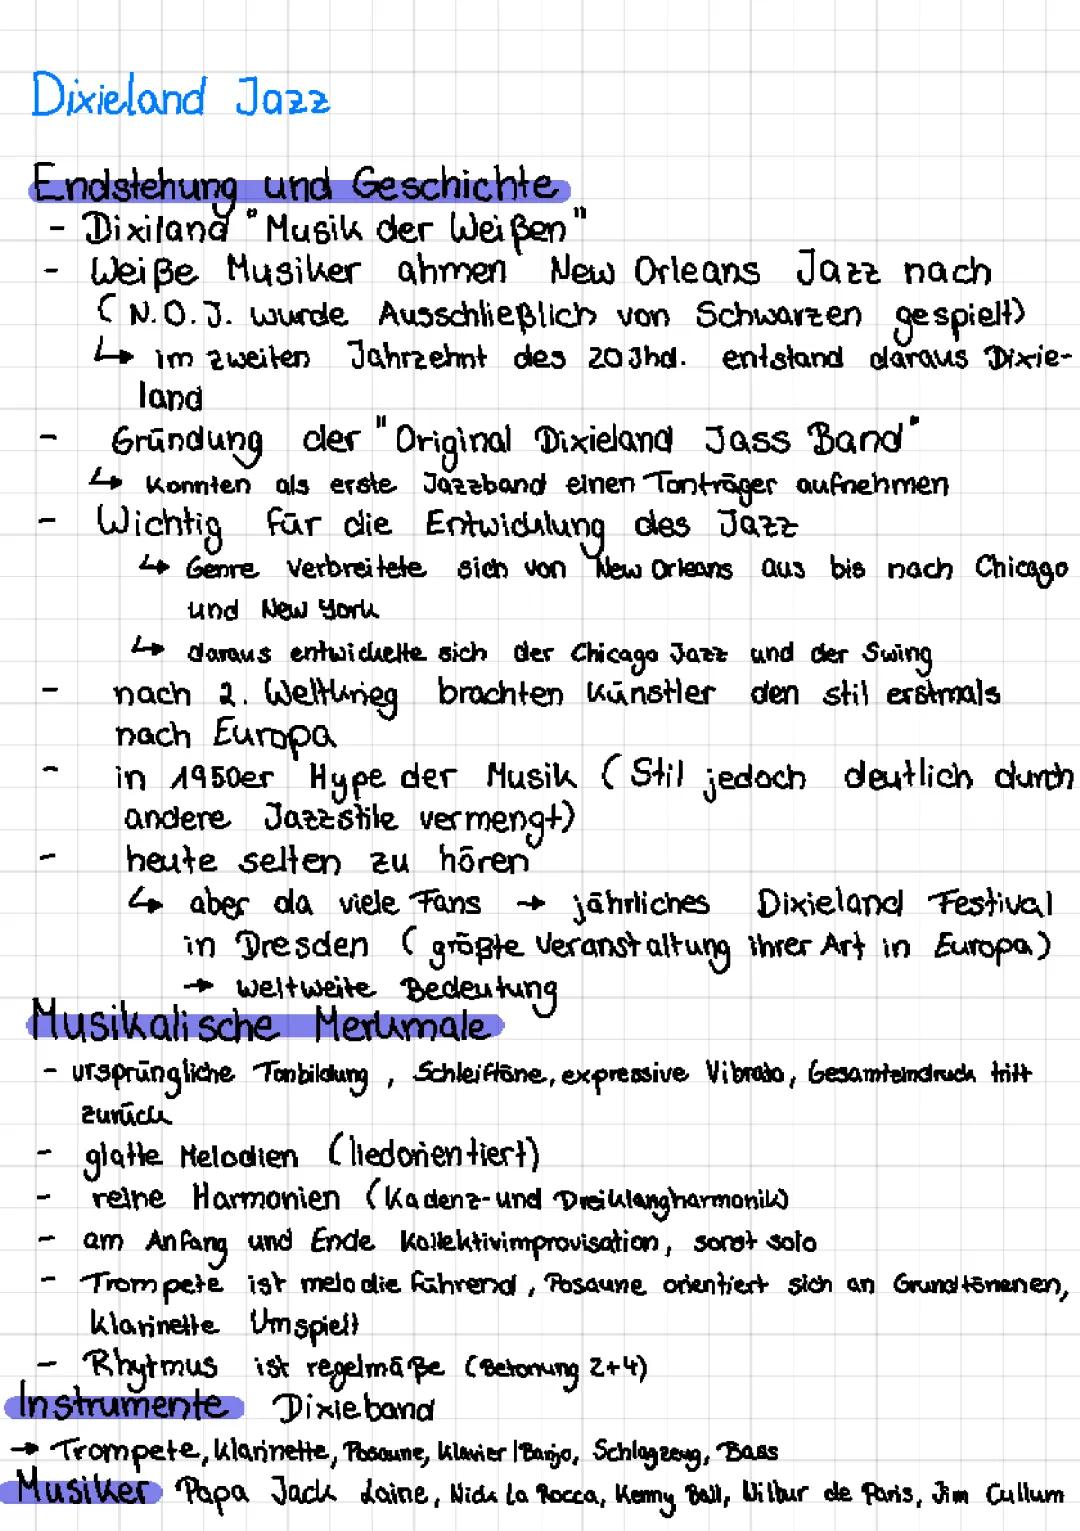 Dixieland Jazz
Endstehung und Geschichte
- Dixiland "Musik der Weißen"
- Weiße Musiker ahmen New Orleans Jazz nach
( N.O.J. wurde Ausschließlich von Schwarzen gespielt)
↳ im zweiten Jahrzehnt des 20 Jhd. entstand daraus Dixie-
land
- Gründung der "Original Dixieland Jass Band"
↳ konnten als erste Jazzband einen Tonträger aufnehmen
- Wichtig für die Entwicklung des Jazz
↳ Genre verbreitete sich von New Orleans aus bis nach Chicago
und New York
↳ daraus entwickelte sich der Chicago Jazz und der Swing
- nach 2. Weltkrieg brachten Künstler den stil erstmals
nach Europa
- in 1950er Hype der Musik (Stil jedoch deutlich durch
andere Jazzstile vermengt)
- heute selten zu hören
↳ aber da viele Fans → jährliches Dixieland Festival
in Dresden ( größte Veranstaltung ihrer Art in Europa)
→ weltweite Bedeutung
Musikalische Merkmale
- ursprüngliche Tonbildung, Schleiftöne, expressive Vibrato, Gesamteindruck tritt
zurück
- glatte Melodien (liedorientiert)
- reine Harmonien (Kadenz- und Dreiklangharmonik)
- am Anfang und Ende Kollektivimprovisation, sonst solo
- Trompete ist melodie führend, Posaune orientiert sich an Grundtönenen,
Klarinette Umspielt
- Rhytmus ist regelmäße (Betonung 2+4)
Instrumente Dixieband
→ Trompete, Klarinette, Posaune, Klavier | Banjo, Schlagzeug, Bass
Musiker Papa Jack Laine, Nick La Rocca, Kenny Ball, Wilbur de Paris, Jim Cullum